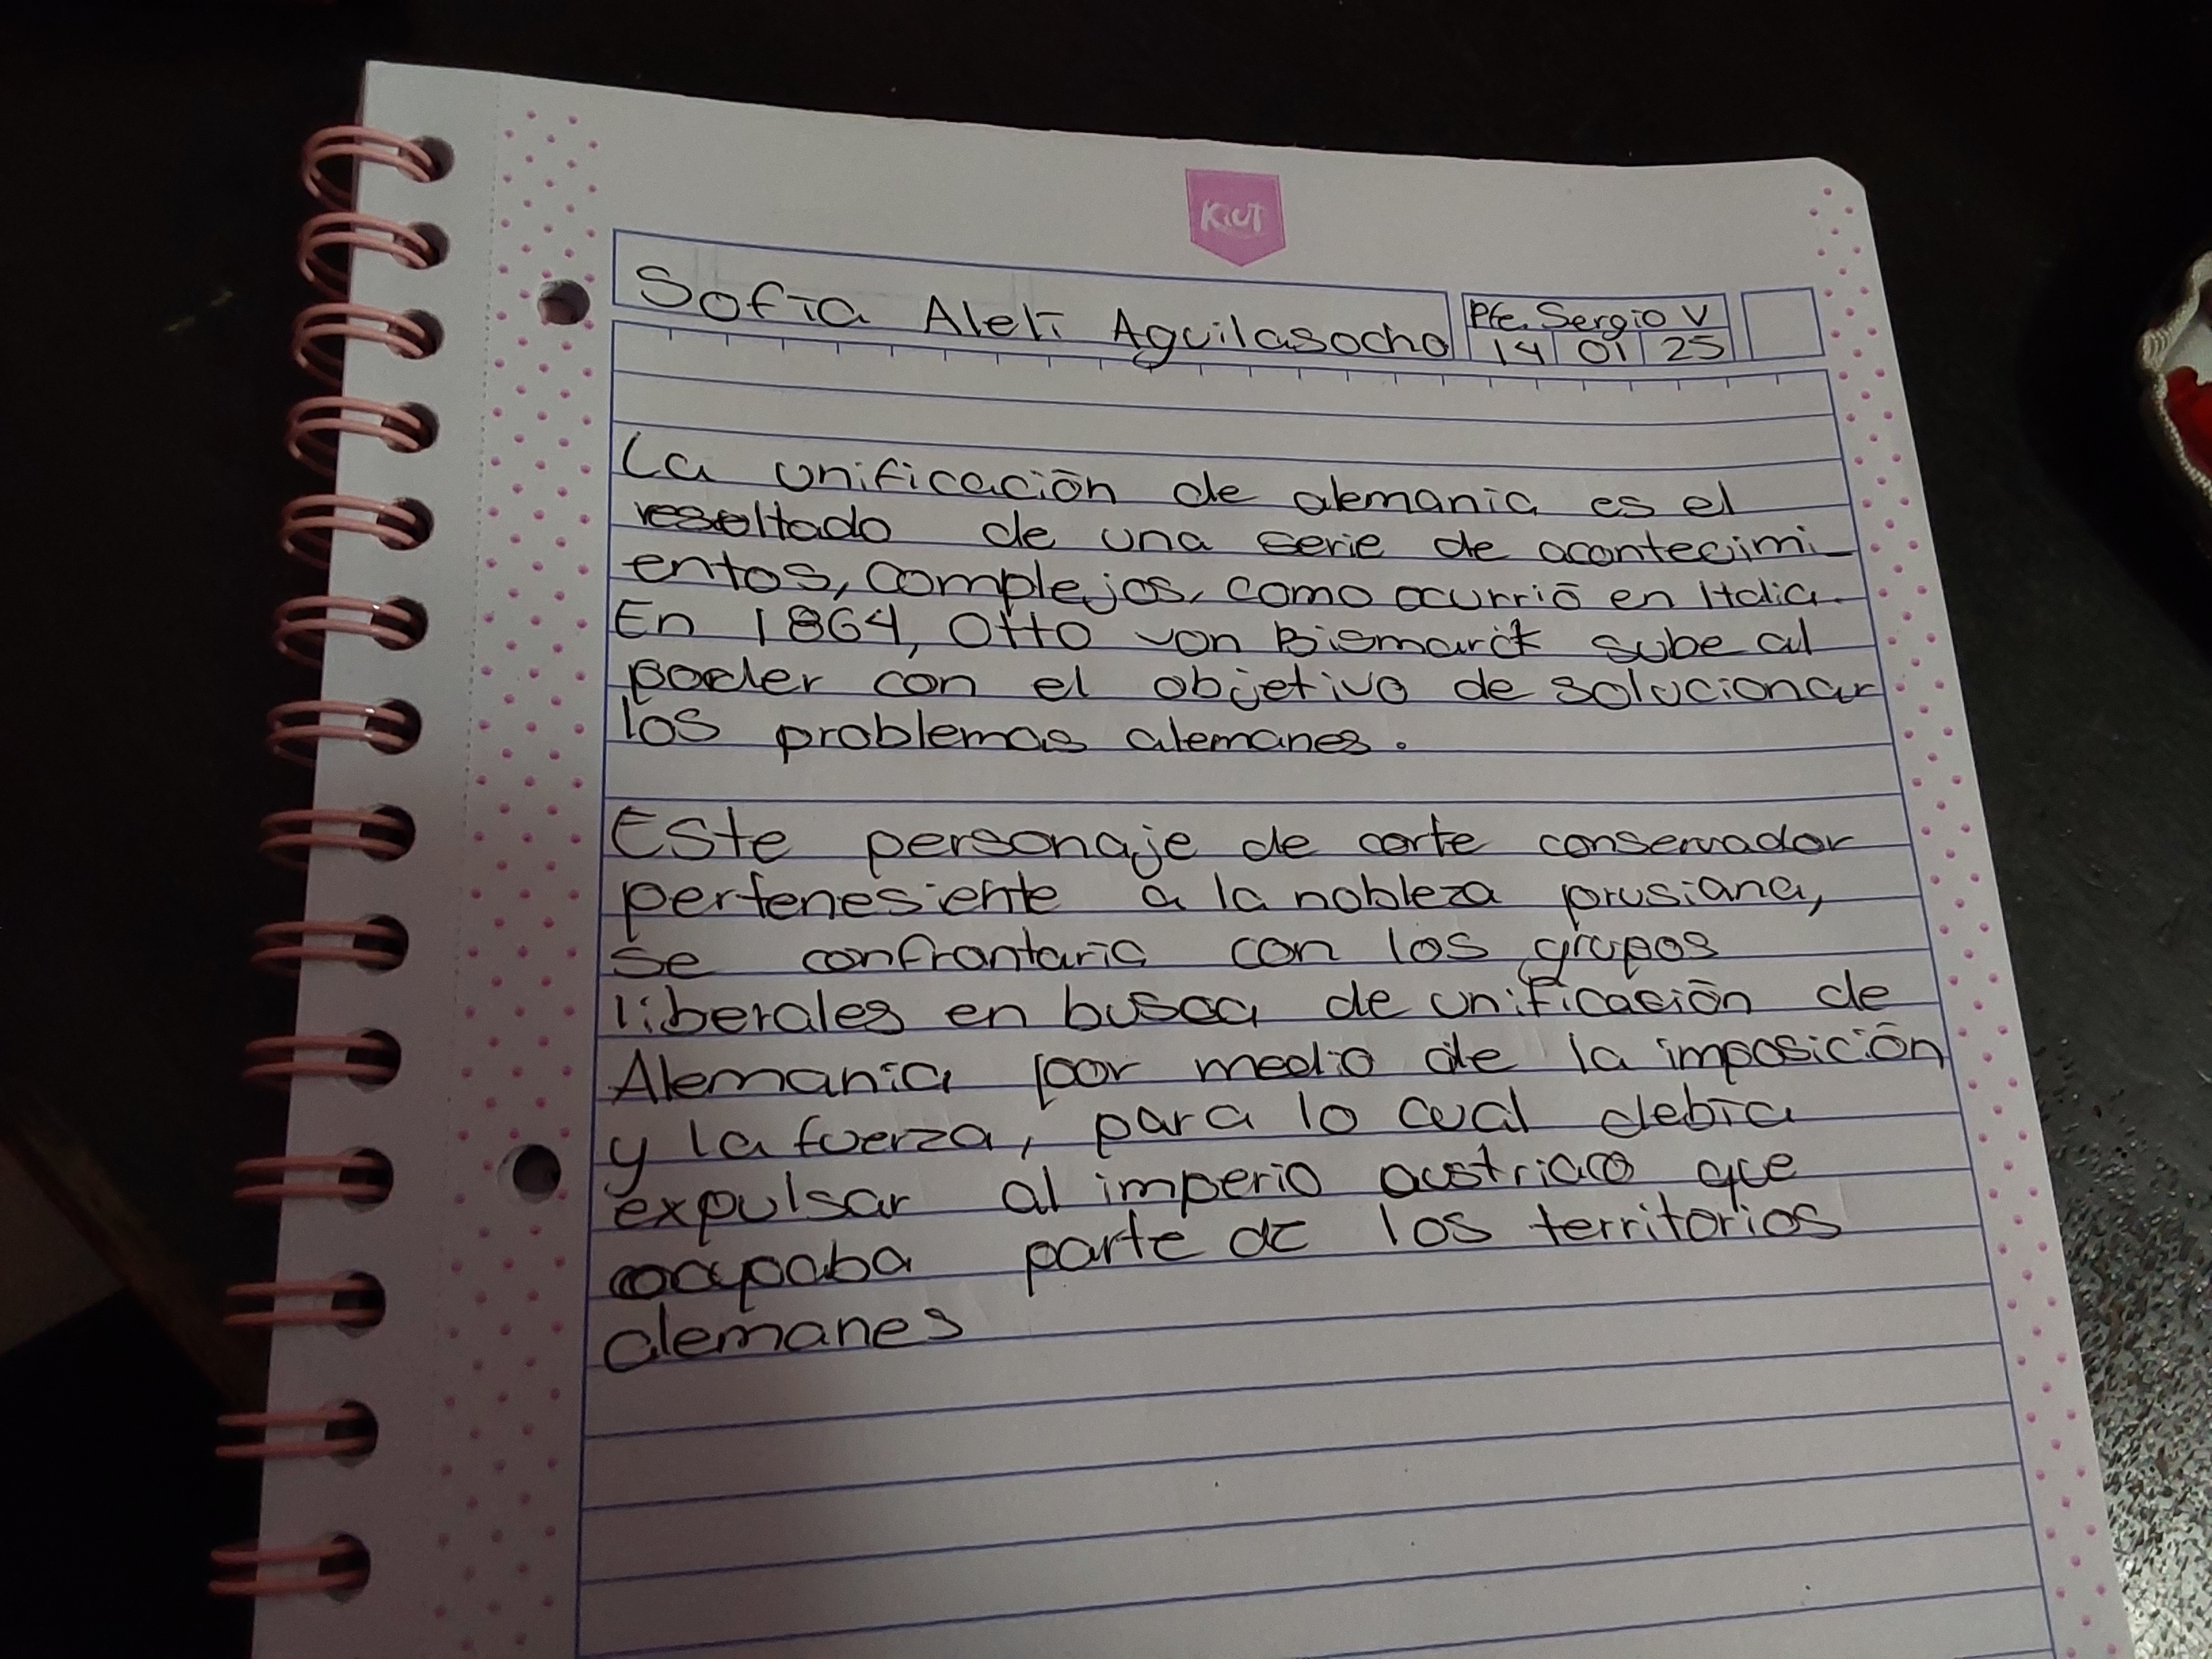 KIUT
Sofía Alelí Aguilasocho
Pfe. Sergio V
14 01 25
La unificación de alemania es el
resultado de una serie de acontecimi-
entos, complejos, como ocurrió en Italia.
En 1864, Otto von Bismarck sube al
poder con el objetivo de solucionar
los problemas alemanes.
Este personaje de corte conservador
pertenesiente a la nobleza prusiana,
se confrontaría con los grupos
liberales en busca de unificasión de
Alemania por medio de la imposición
y la fuerza, para lo cual debía
expulsar al imperio austriaco que
ocupaba parte de los territorios
alemanes